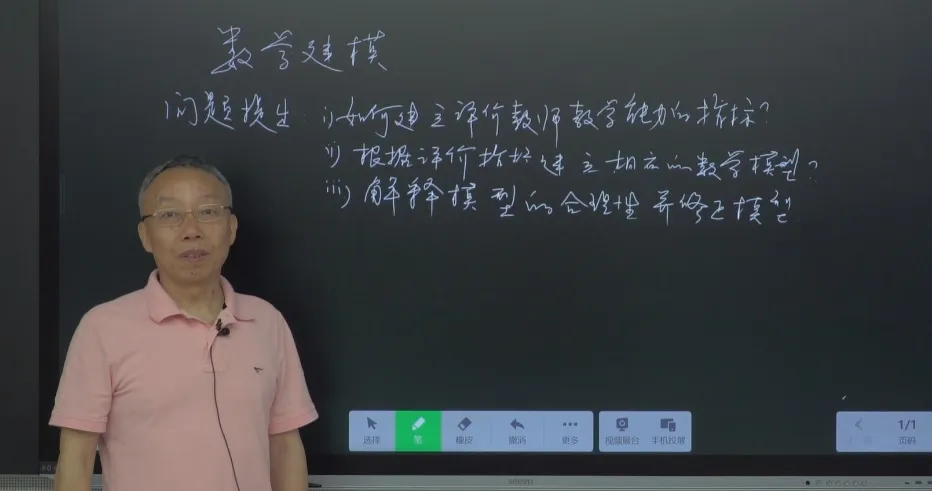 数学建模
问题提出: i) 如何建立评价教师教学能力的指标?
ii) 根据评价指标建立相应的数学模型?
iii) 解释模型的合理性并修正模型
选择 笔 橡皮 撤消 更多 视频展台 手机投屏 1/1 页码
seewo